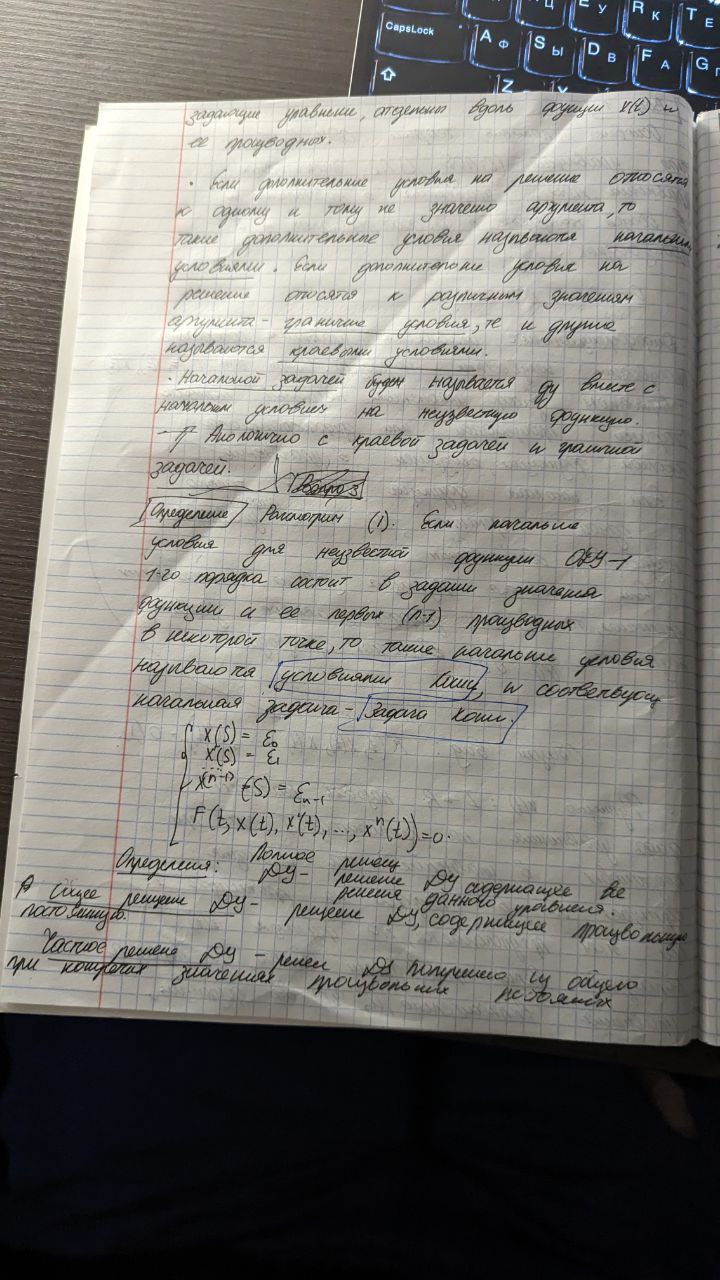 CapsLock
А Ф
S Ы
D В
F А
G П
E У
R К
T Е
Z
задающие уравнение, отдельны вдоль функции x(t) и
ее производных.
· Если дополнительные условия на решение относятся
к одному и тому же значению аргумента, то
такие дополнительные условия называются начальными
условиями. Если дополнительные условия на
решение относятся к различным значениям
аргумента - граничные условия, те и другие
называются краевыми условиями.
· Начальной задачей будем называется ду вместе с
начальным условием на неизвестную функцию.
Аналогично с краевой задачей и граничной
задачей.
Вопрос 3
Определение Рассмотрим (1). Если начальные
условия для неизвестной функции ОДУ-1
1-го порядка состоит в задании значения
функции и ее первых (n-1) производных
в некоторой точке, то такие начальные условия
называются условиями Коши, и соответствующ
начальная задача - Задача Коши.
x(s) = ε₀
x'(s) = ε₁
.....
x^(n-1) (s) = ε_{n-1}
F(t, x(t), x'(t), ..., xⁿ(t)) = 0.
Определения: Полное решен
ДУ - решение ДУ содержащее все
решения данного уравнения.
Общее решение ДУ - решение ДУ, содержащее произвольную
постоянную.
Частное решение ДУ - решен ДУ полученно из общего
при конкретных значениях произвольных постоянных